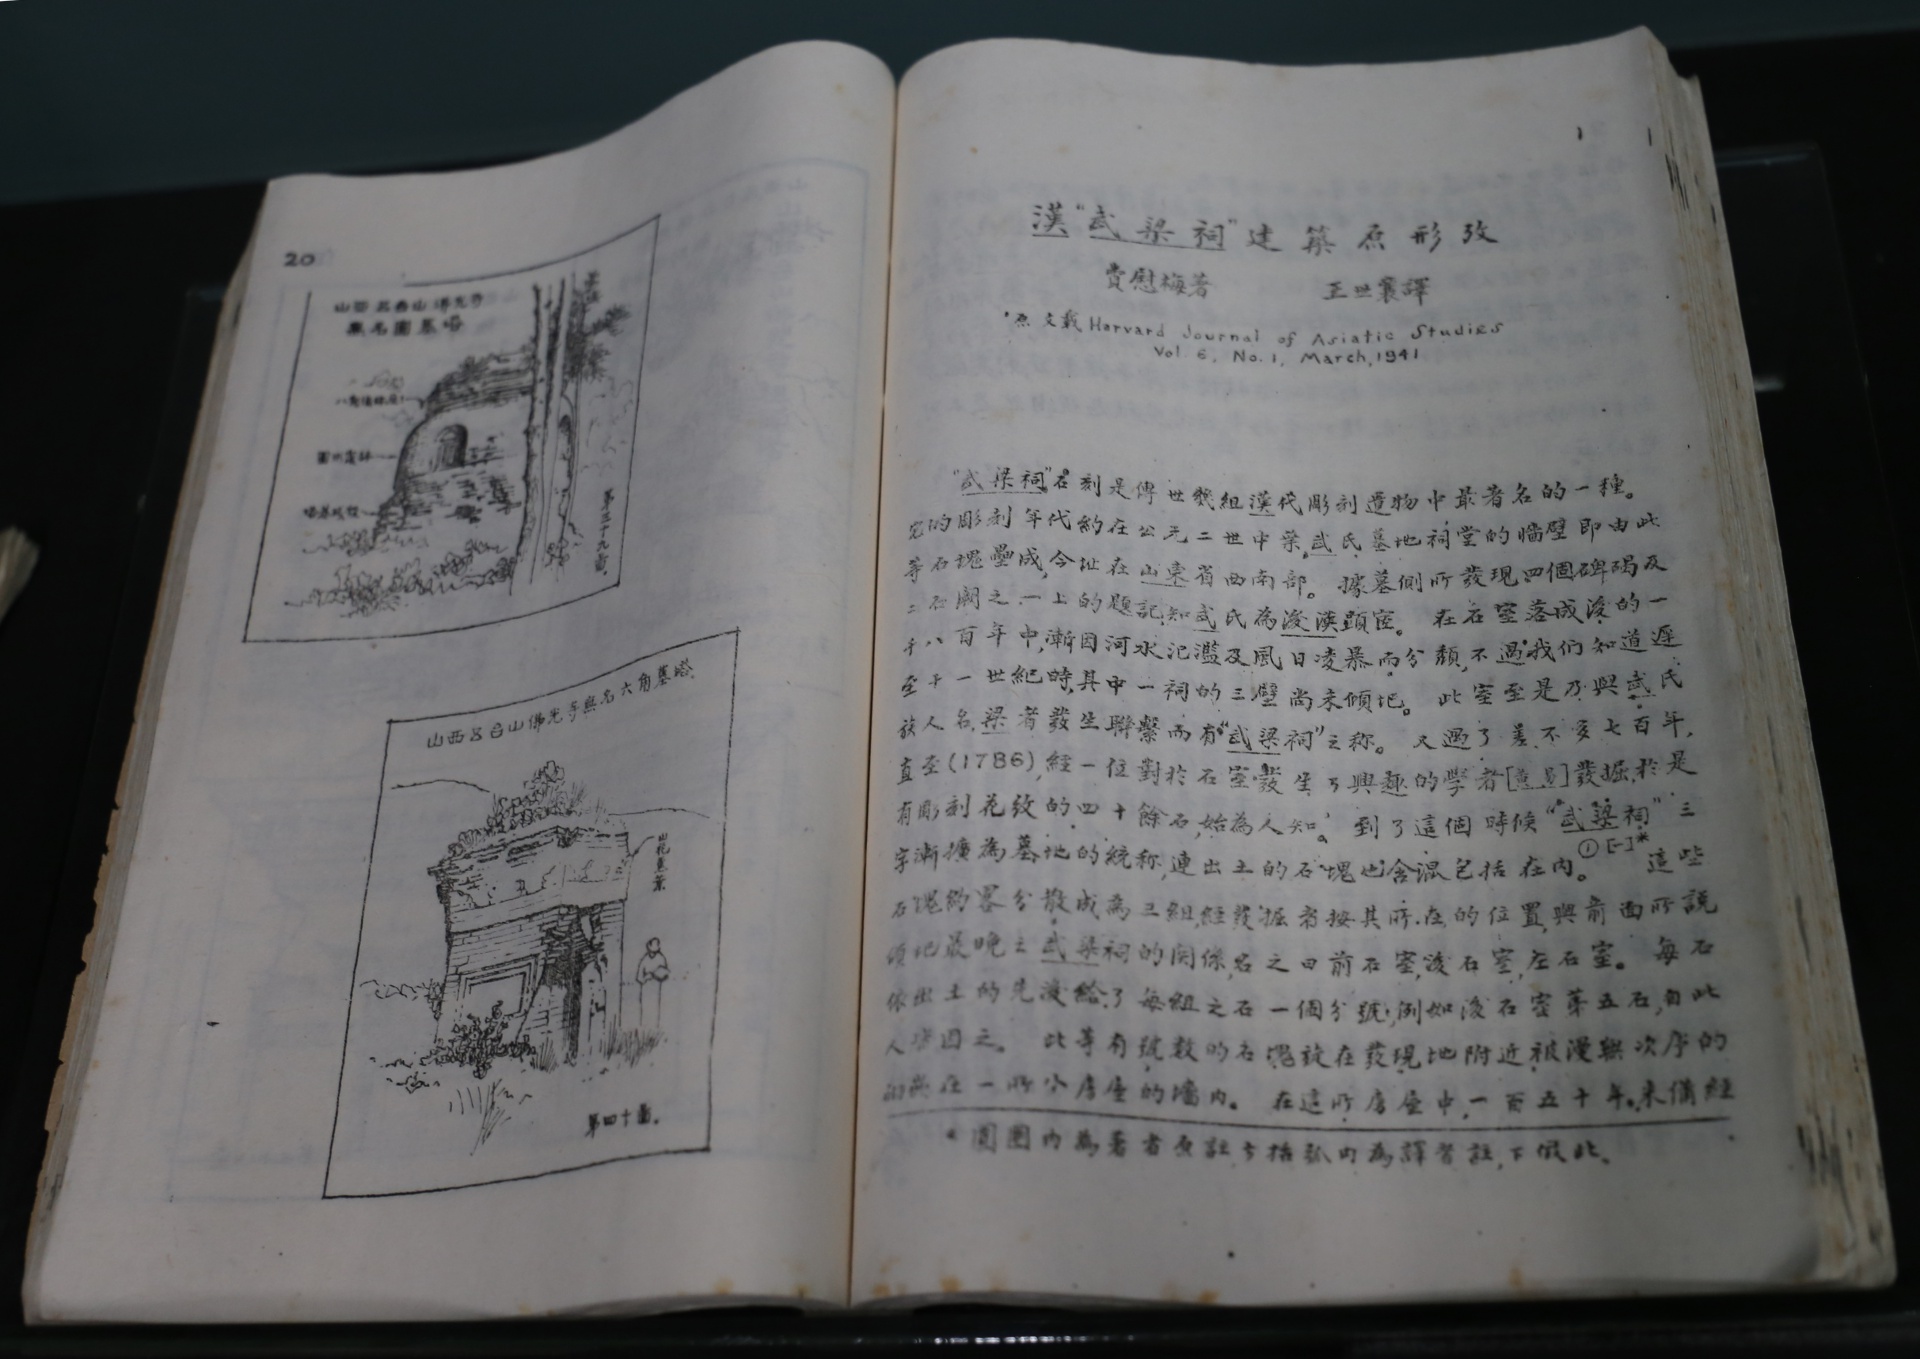 20
山西五台山佛光寺
無名圓墓塔
第三十九圖。
山西五台山佛光寺無名六角墓塔
山花蕉葉
第四十圖。
1
漢“武梁祠”建築原形攷
費慰梅著 王世襄譯
原文載 Harvard Journal of Asiatic Studies
Vol. 6, No. 1, March, 1941
“武梁祠”石刻是傳世幾組漢代彫刻遺物中最著名的一種。
它的彫刻年代約在公元二世中葉,武氏墓地祠堂的牆壁即由此
等石塊壘成,今址在山東省西南部。據墓側所發現四個碑碣及
二石闕之一上的題記,知武氏為後漢顯宦。在石室落成後的一
千八百年中,漸因河水汜濫及風日凌暴而分頽,不過我們知道遲
至十一世紀時,其中一祠的三壁尚未傾圮。此室至是乃與武氏
族人名梁者發生聯繫而有“武梁祠”之称。又過了差不多七百年,
直至(1786),經一位對於石室發生了興趣的學者[黃易]發掘,於是
有彫刻花紋的四十餘石,始為人知。到了這個時候“武梁祠”三
字漸擴為墓地的統称,連出土的石塊也含混包括在內。①[一]* 這些
石塊約畧分散成為三組,經發掘者按其所在的位置,與前面所說
傾圮最晚之武梁祠的関係,名之曰前石室,後石室,左石室。每石
依出土的先後給了每組之石一個分號,例如後石室第五石,自此
人皆因之。此等有號數的石塊放在發現地附近被漫無次序的
在一所小房屋的墻內。在這所房屋中,一百五十年來僅經
* 圓圈內為著者原註,方括弧內為譯者註,下倣此。